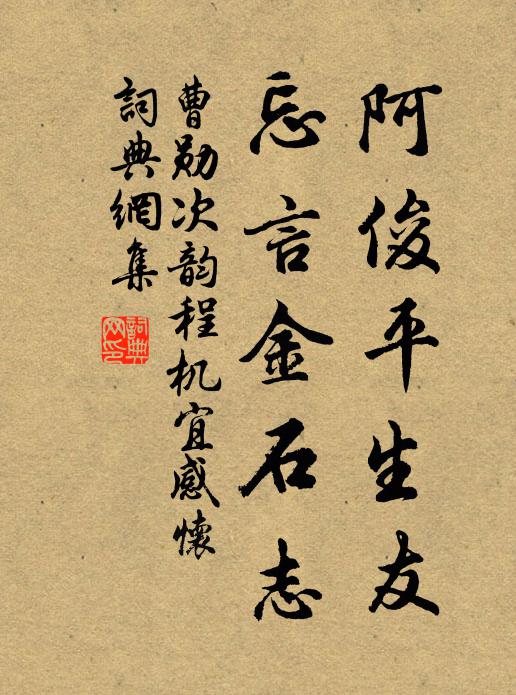 阿俊平生友
忘言金石志
曹勋次韵程机宜感懷
詞典網集
詞典网印